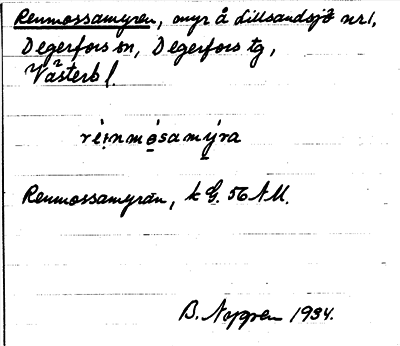 Renmossamyren, myr å Lillsandsjö nr 1,
Degerfors sn, Degerfors tg,
Västerb l.
ré:nmòsamýra
Renmossamyran, k G. 56 NU.
B. Noggren 1934.